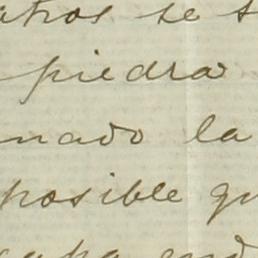 atros se s
piedra
nado la
posible qu